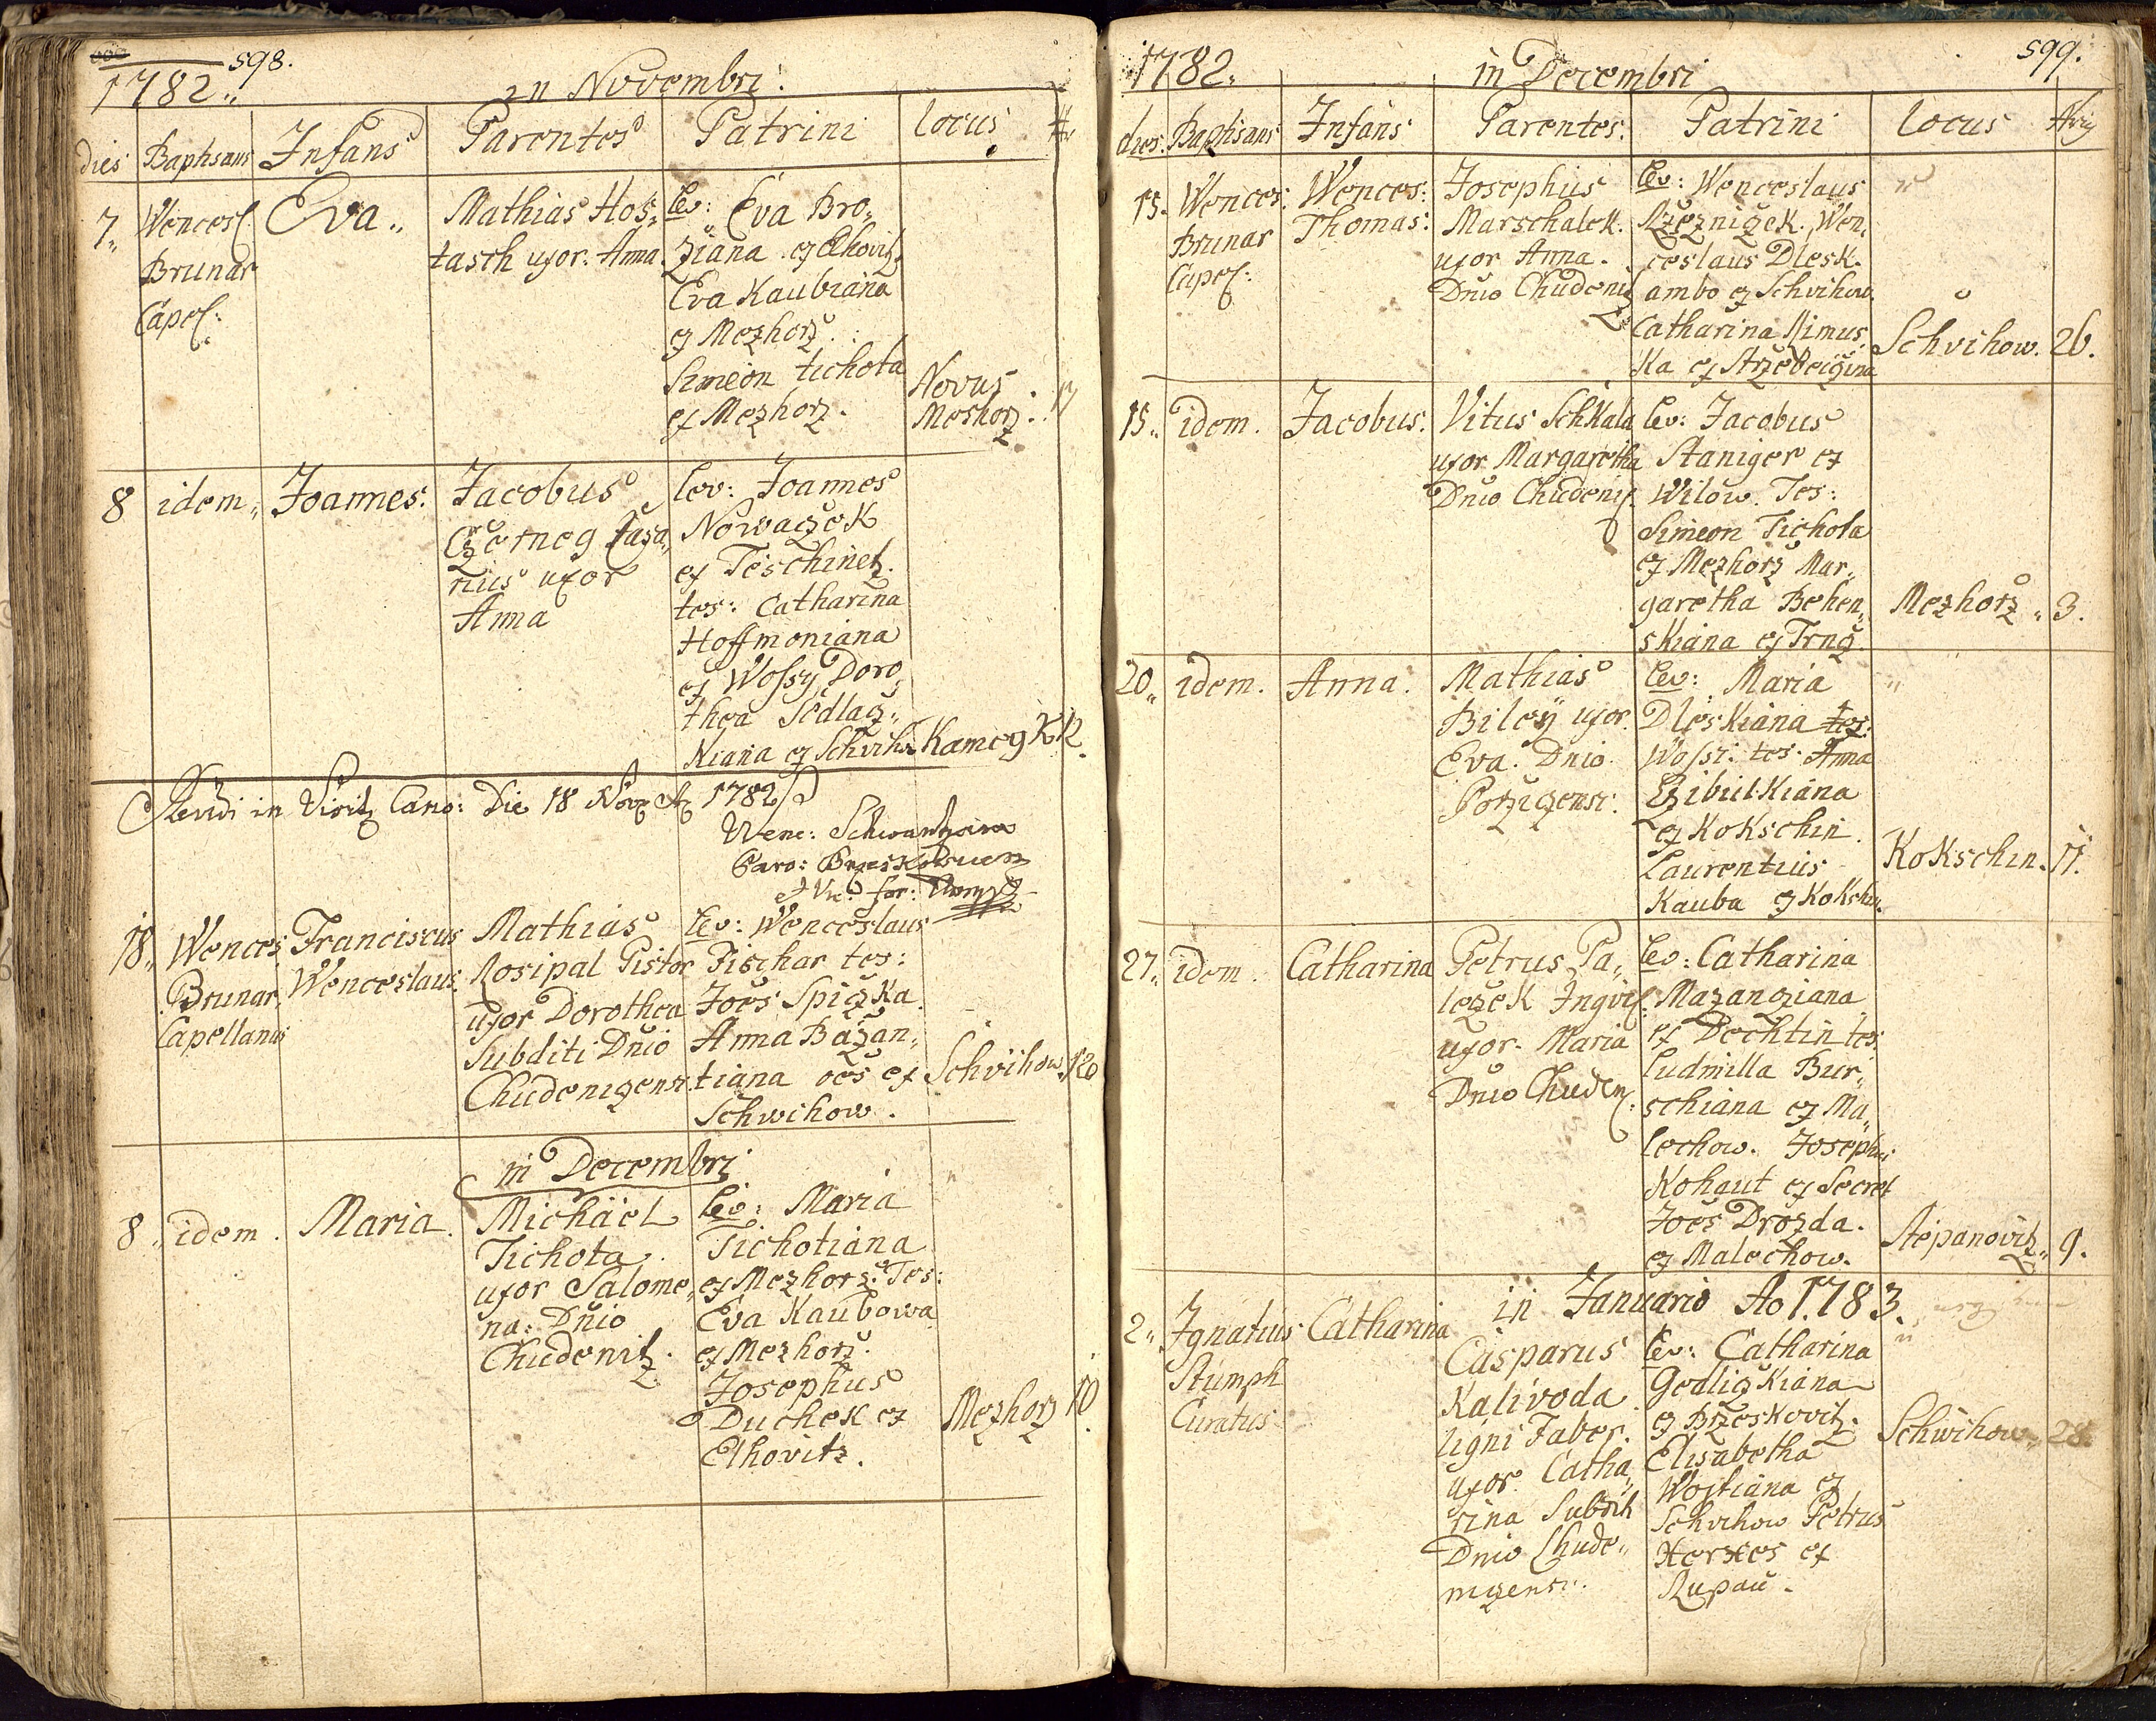 598.
1782.,
in Novembri.
dies Baptisans Infans Parentes Patrini Locus
7,, Wencesl: Brunar Capel:
Eva.,
Mathias Hos,,
tasch uxor: Anna.
Lev: Eva Bro,,
ziana ex Elhovitz
Eva Kaubiana
ex Mezhorz.
Simeon tichota
ex Mezhorz.
Novus
Meshorz.
17
8 idem,, Joannes.
Jacobus
Czerneg
rius uxor
Anna
lev: Joannes
Nowaczek
ex Teschinetz.
tes: Catharina
Hoffmoniana
ex Wossy Doro,,
thea Sedlacz,,
Kiana ex Schviho
Kameg K 12.
in Visit Cano: Die 18 1782
Wenc:
Paro:
et Vic: for:
18,, Wences Brunar Capellanus
Franciscus
Wenceslaus.
Mathias
Rosipal Pistor
uxor Dorothea
Subditi Dnio
Chudenizensi.
Lev: Wenceslaus
Fischar tes:
Joes Spiczka.
Anna Bazan,,
tiana oes ex
Schwihow.
Schvihow. 120
in Decembri
8,, idem. Maria.
Michäel
Tichota.
uxor Salome,,
na: Dnio
Chudenitz.
Lev: Maria
Tichotiana
ex Mezhorz. Tes:
Eva Kaubowa
ex Mezhorz.
Josephus
Duchek ex
Elhovitz.
Mezhorz 10.
1782.
in Decembri
599.
dies. Baptisans Infans Parentes. Patrini Locus
15. Wences: Brunar Capel:
Wences:
Thomas:
Josephus
Marschalek.
uxor Anna.
Dnio Chudenitz
Lev: Wenceslaus
Rzezniczek. Wen,,
ceslaus Dlesk.
ambo ex Schvihow.
Catharina Simus,,
Ka ex
Schvihow. 26.
15,, idem. Jacobus.
Vitus Schkala
uxor Margaretha
Dnio Chudeni.
lev: Jacobus
Staniger ex
Wilow. Tes:
Simeon Tichota
ex Mezhorz Mar,,
garetha Behen,,
skiana ex Trncz.
Mezhorz,, 3.
20,, idem. Anna.
Mathias
Bileÿ uxor.
Eva. Dnio.
Porzizensi.
Lev: Maria
Dleskiana tes:
Wossi. tes. Anna
Czibulkiana
ex Kokschin.
Laurentius
Kauba ex Kokschin.
Kokschin. 11.
27,, idem. Catharina
Petrus Pa,,
leczek Inqvil.
uxor. Maria
Dnio Chuden.
Lev: Catharina
Mazanziana
ex Dechtin tes:
Ludmilla Bur,,
schiana ex Ma,,
lechow. Josephus
Kohaut ex Secret
Joes Drozda.
ex Malechow.
Stepanovitz,, 9.
in Januario Ao 1783.
2,, Ignatius Stumph Curatus
Catharina
Casparus
Kalivoda
ligni Faber.
uxor. Catha,,
rina Subditi
Dnio Chude,,
nizensi.
Lev: Catharina
Gedliczkiana
ex Brzeskovitz.
Elisabetha
Wojtiana ex
Schvihow Petrus
Herses ex
Rupau.
Schwihow,, 28.